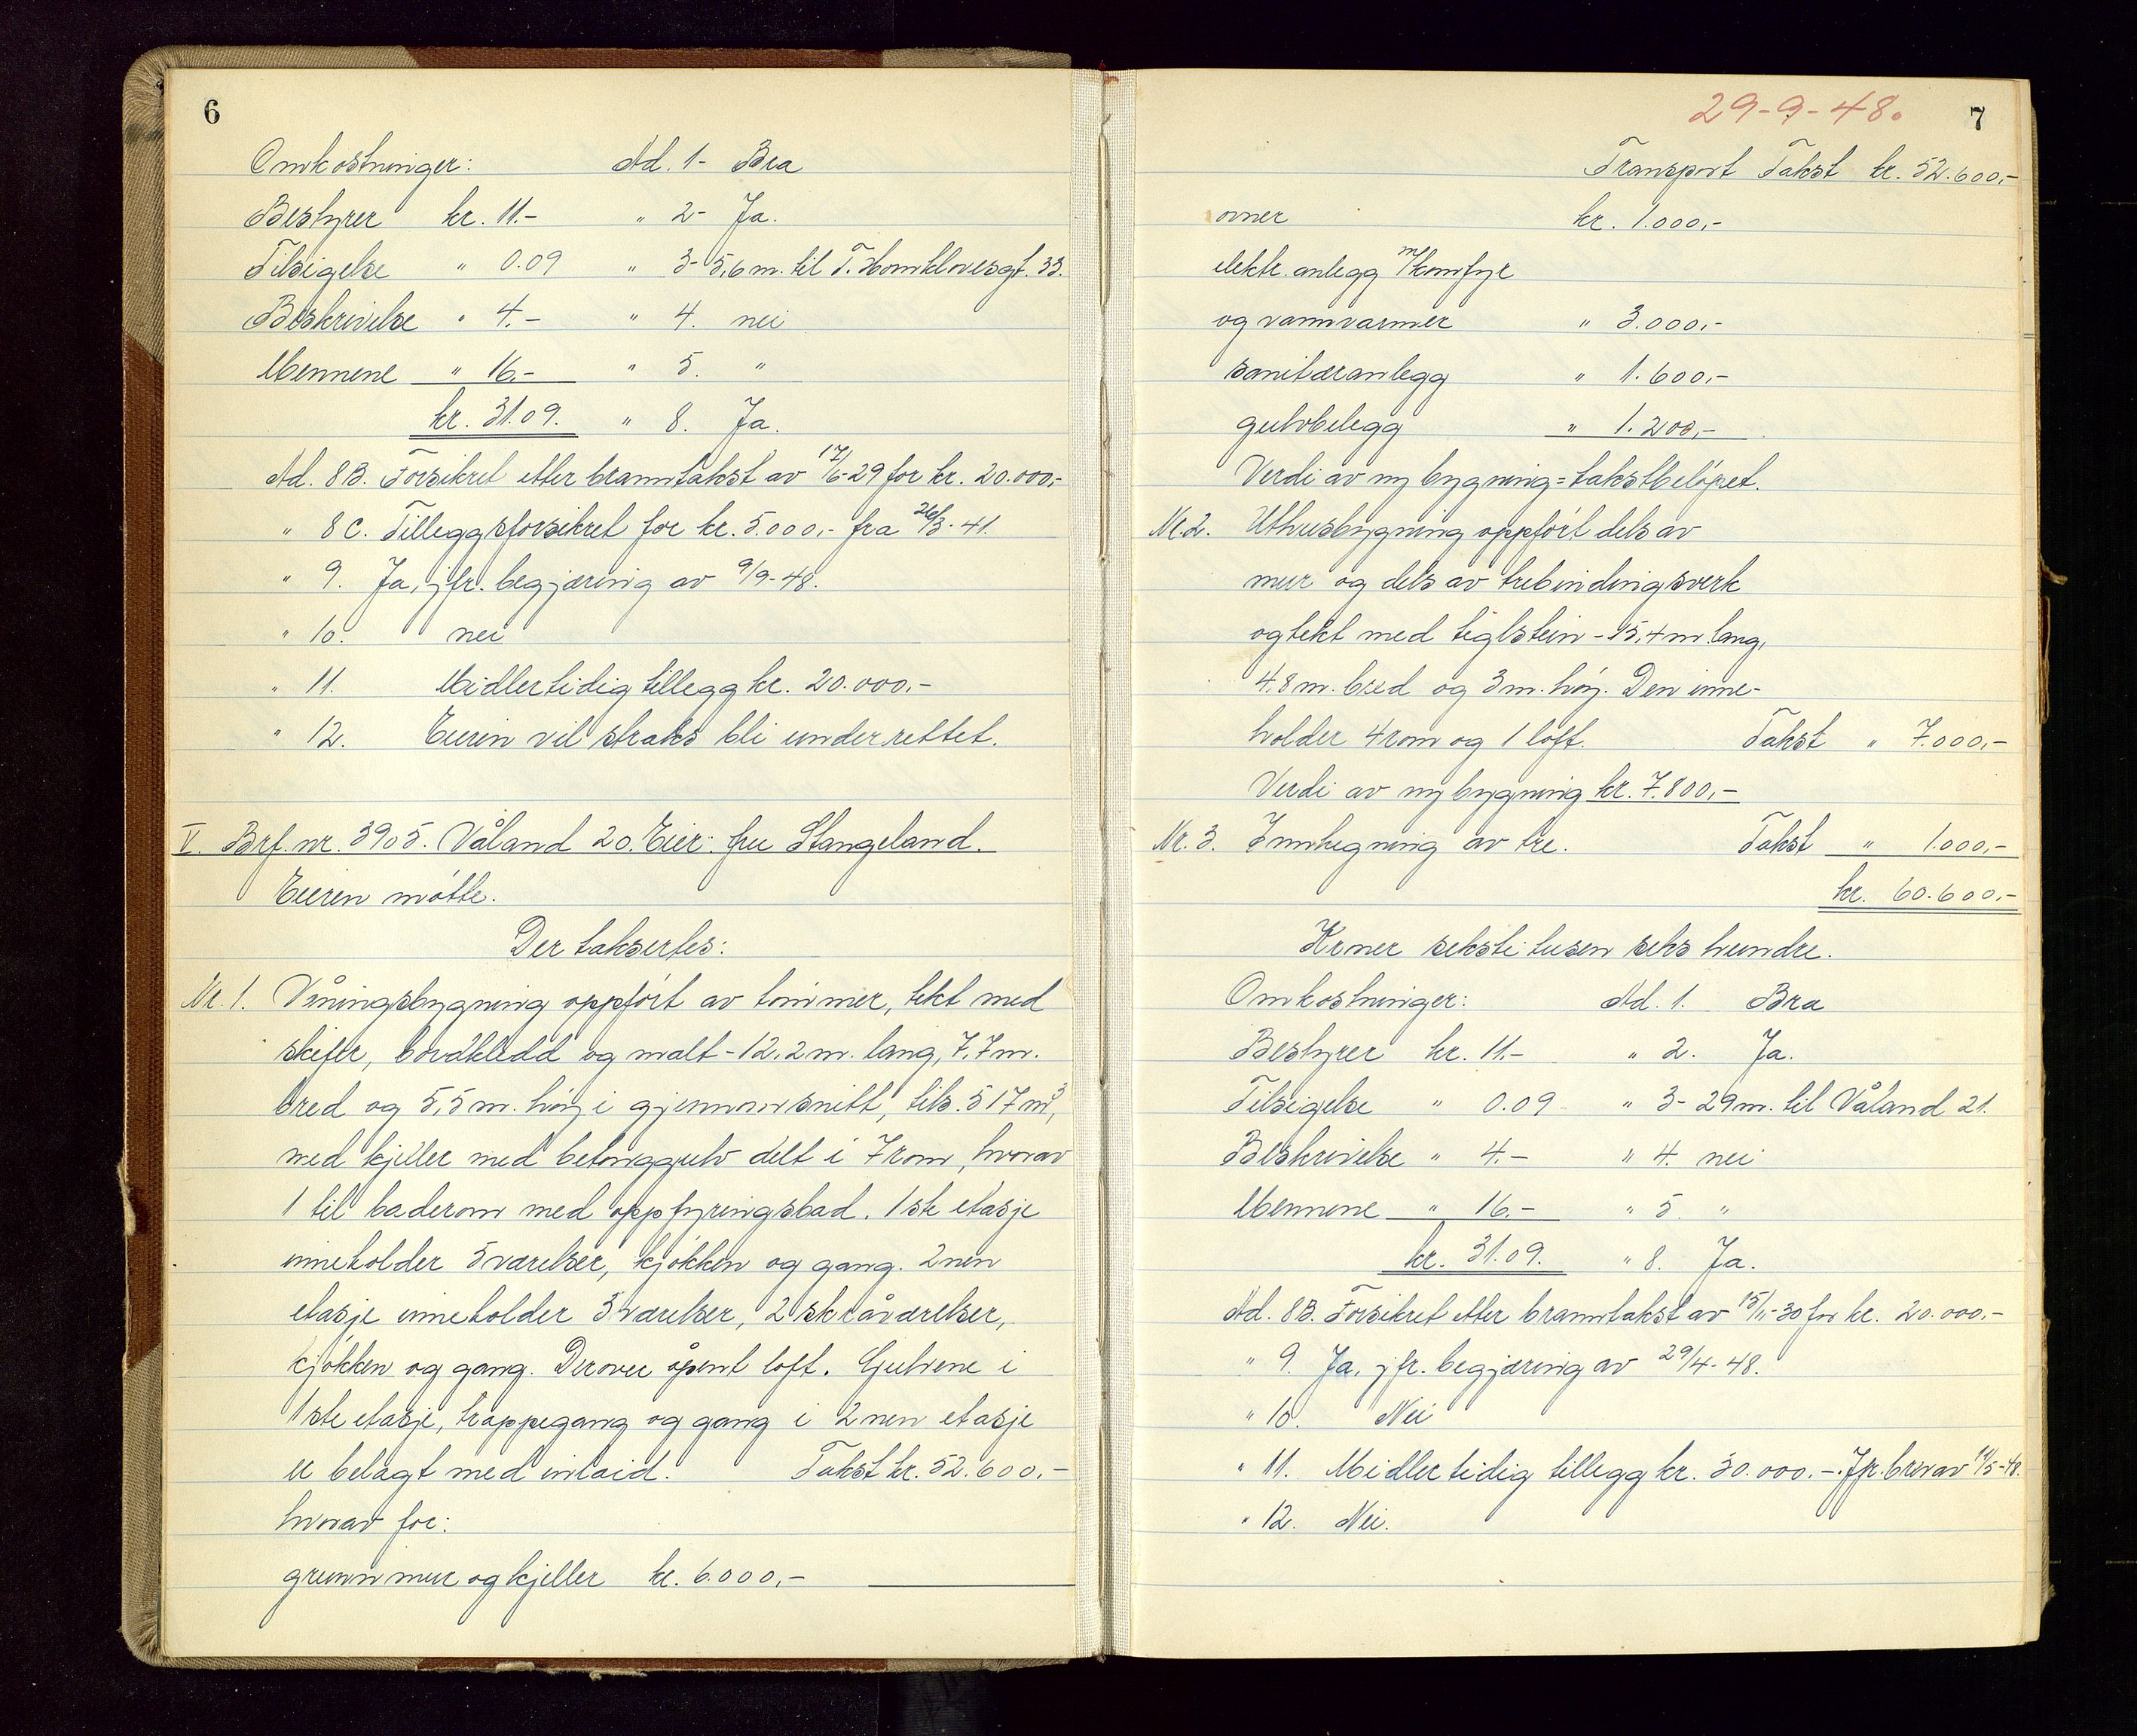 6
Omkostninger: Ad. 1- Bra
Bestyrer kr. 11.- " 2- Ja.
Tilsigelse " 0.09 " 3- 5,6 m. til T. Hornklovesgt. 33.
Beskrivelse " 4.- " 4. nei
Mennene " 16.- " 5. "
kr. 31.09. " 8. Ja.
Ad. 8B. Forsikret etter branntakst av 17/6-29 for kr. 20.000,-
" 8C. Tilleggsforsikret for kr. 5.000,- fra 26/3-41.
" 9. Ja, jfr. begjæring av 9/9-48.
" 10. nei
" 11. Midlertidig tillegg kr. 20.000.-
" 12. Eieren vil straks bli underrettet.
V. Brf. nr. 3905. Våland 20. Eier: fru Stangeland.
Eieren møtte.
Der taksertes:
Nr. 1. Våningsbygning oppført av tømmer, tekt med
skifer, bordkledd og malt - 12,2 m. lang, 7,7 m.
bred og 5,5 m. høy i gjennomsnitt, tils. 517 m³,
med kjeller med betonggulv delt i 7 rom, hvorav
1 til baderom med oppfyringsbad. 1ste etasje
inneholder 5 værelser, kjøkken og gang. 2nen
etasje inneholder 3 værelser, 2 skråværelser,
kjøkken og gang. Derover åpent loft. Gulvene i
1ste etasje, trappegang og gang i 2nen etasje
er belagt med inlaid. Takst kr. 52.600.-
hvorav for:
grunnmur og kjeller kr. 6.000,-
29-9-48. 7
Transport Takst kr. 52.600,-
ovner kr. 1.000,-
elektr. anlegg m/komfyr
og vannvarmer " 3.000,-
sanitæranlegg " 1.600,-
gulvbelegg " 1.200,-
Verdi av ny bygning = takstbeløpet.
Nr. 2. Uthusbygning oppført dels av
mur og dels av trebindingsverk
og tekt med teglstein - 15,4 m lang,
4,8 m. bred og 3 m. høy. Den inne-
holder 4 rom og 1 loft. Takst " 7.000,-
Verdi av ny bygning kr. 7.800,-
Nr. 3. Innhegning av tre. Takst " 1.000,-
kr. 60.600,-
Kroner seksti tusen seks hundre.
Omkostninger: Ad. 1. Bra
Bestyrer kr. 11.- " 2. Ja.
Tilsigelse " 0.09 " 3- 29 m. til Våland 21.
Beskrivelse " 4.- " 4. nei
Mennene " 16.- " 5. "
kr. 31.09. " 8. Ja.
Ad. 8B. Forsikret etter branntakst av 15/11-30 for kr. 20.000,-
" 9. Ja, jfr. begjæring av 29/4-48.
" 10. Nei
" 11. Midlertidig tillegg kr. 30.000.-. Jfr. brev av 11/5-48.
" 12. Nei.